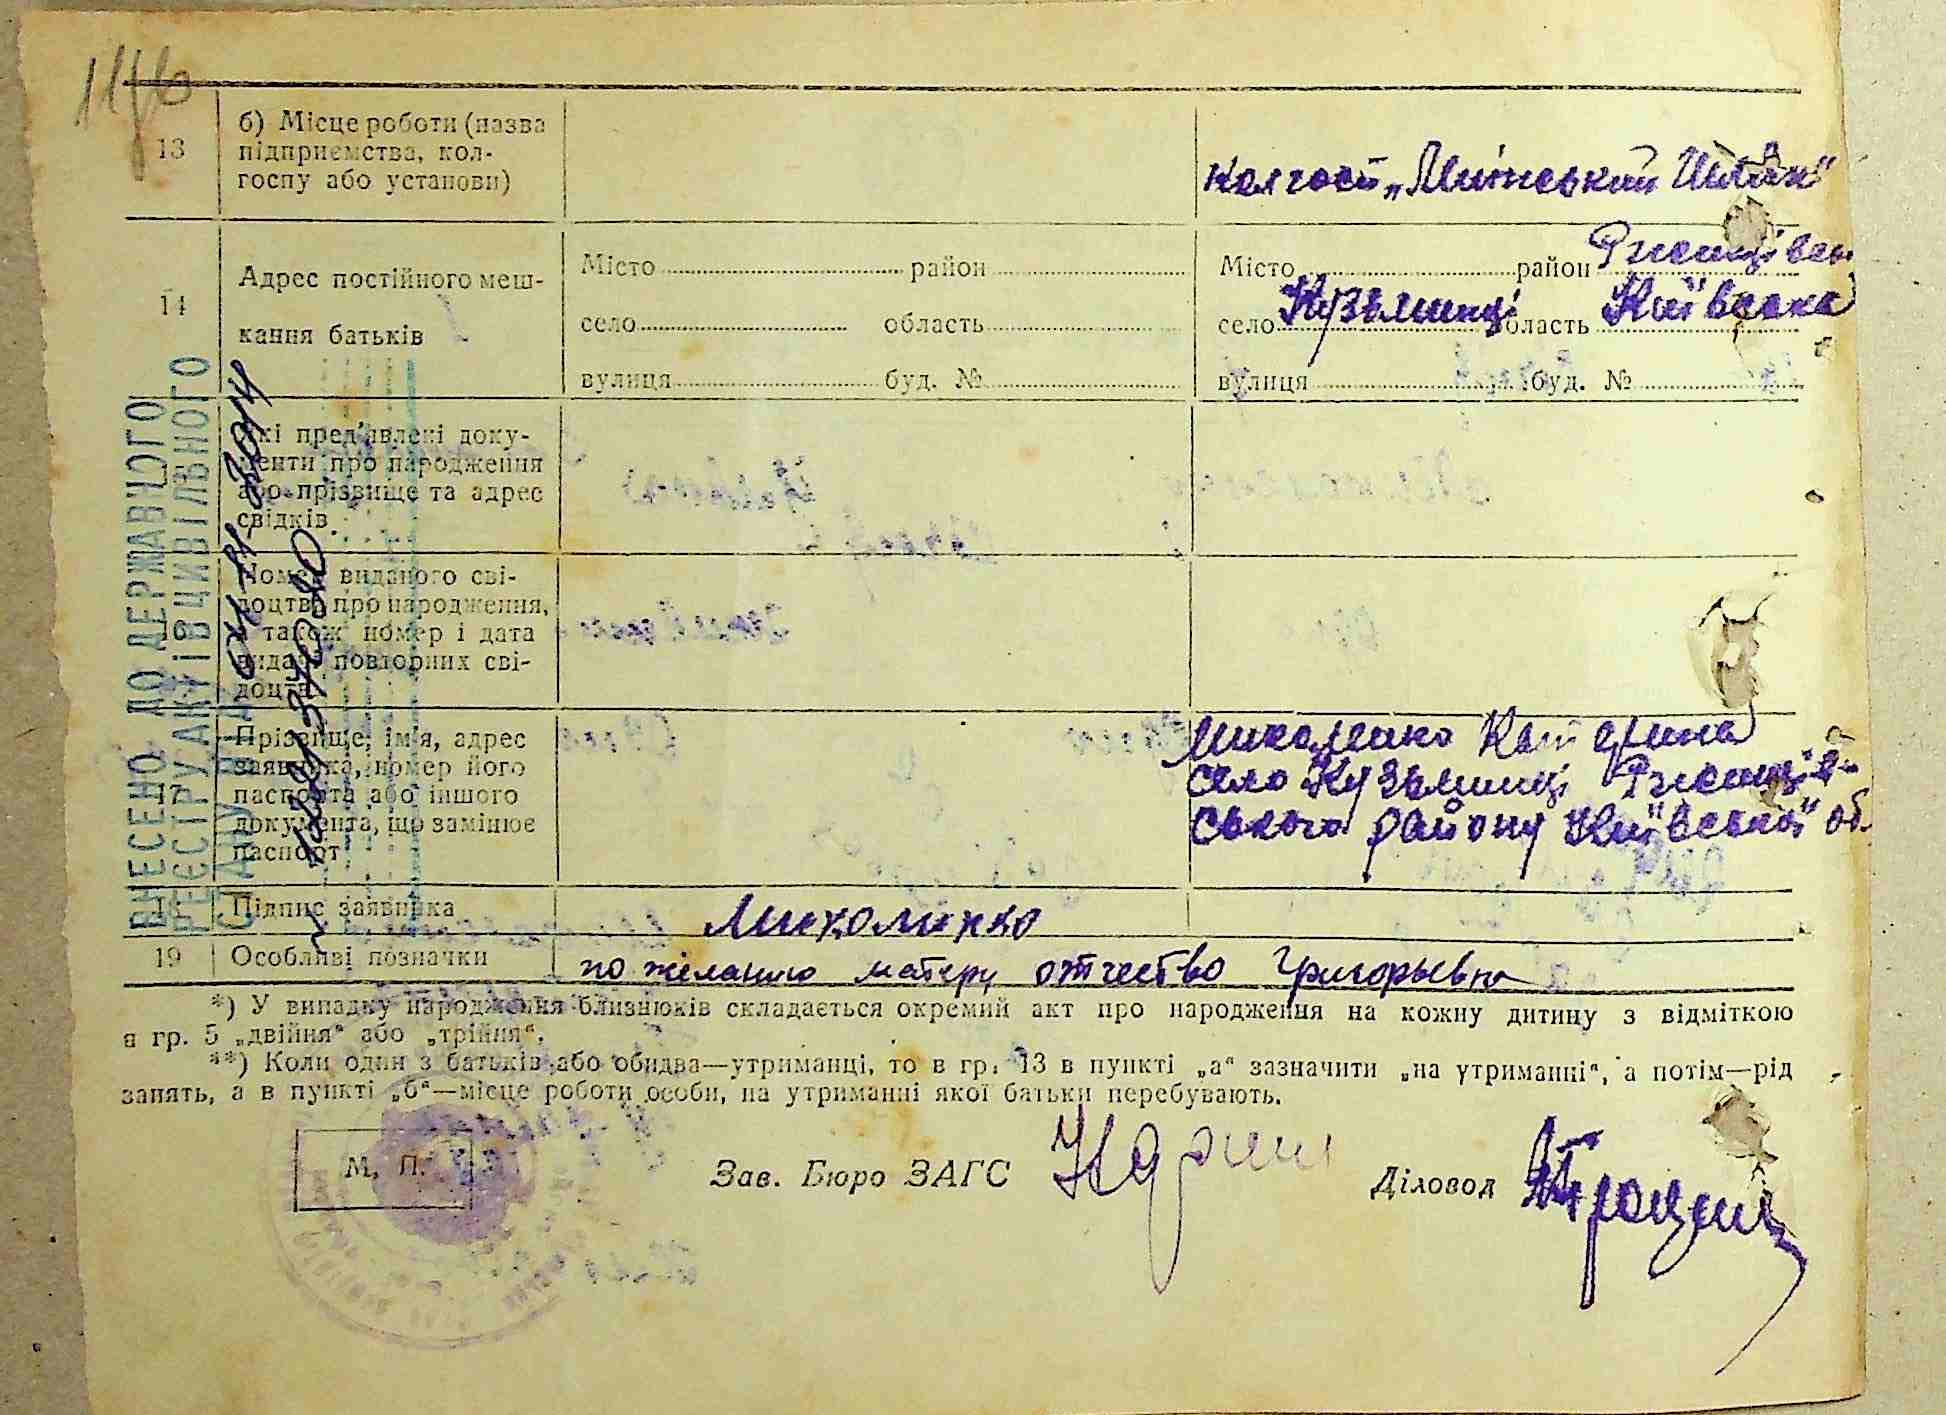 13
б) Місце роботи (назва
підприємства, кол-
госпу або установи)
колгосп „Ленінський Шлях"
14
Адрес постійного меш-
кання батьків
Місто район
село область
вулиця буд. №
Місто район Ржищівськ
село Кузьминці область Київська
вулиця буд. №
ВНЕСЕНО ДО ДЕРЖАВНОГО
РЕЄСТРУ АКТІВ ЦИВІЛЬНОГО
СТАНУ
Які пред'явлені доку-
менти про народження
або прізвище та адрес
свідків
16
Номер виданого сві-
доцтва про народження,
а також номер і дата
видачі повторних сві-
доцтв
17
Прізвище, ім'я, адрес
заявника, номер його
паспорта або іншого
документа, що замінює
паспорт
Миколенко Катерина
село Кузьминці Ржищів-
ського району Київської об.
Підпис заявника
19
Особливі позначки
по желанию матери отчество Григорьевна
*) У випадку народження близнюків складається окремий акт про народження на кожну дитину з відміткою
в гр. 5 „двійня" або „трійня".
**) Коли один з батьків або обидва—утриманці, то в гр. 13 в пункті „а" зазначити „на утриманні", а потім—рід
занять, а в пункті „б"—місце роботи особи, на утриманні якої батьки перебувають.
М. П.
Зав. Бюро ЗАГС
Діловод